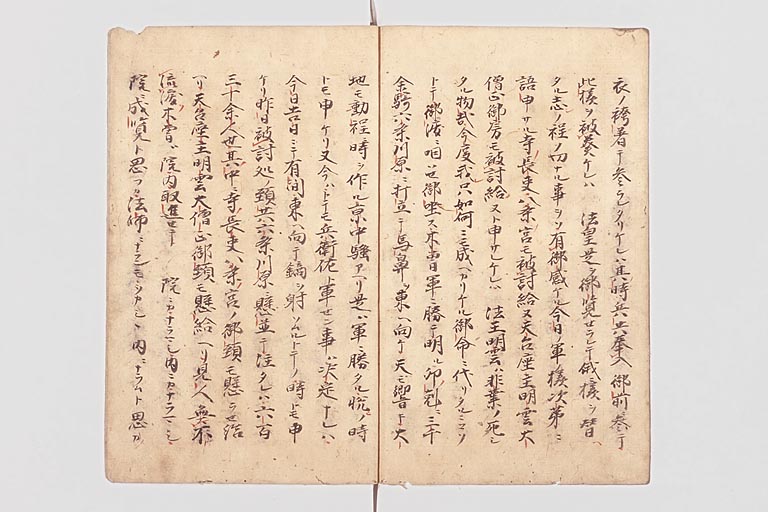 衣ノ袴着テ参ラレタリケレハ其時兵共奉入御前参テ
此様ヲ被奏ケレハ 法皇是ヲ御覧セラレテ俄様ヲ替
タル志ノ程ノ切ナル事ヲソ有御感ケル今日ノ軍様次第ニ
語申サル寺長吏八条宮モ被討給又天台座主明雲大
僧正御房モ被討給ヌト申サレケレハ 法王明雲ハ非業ノ死シ
タル物哉今度我只如何ニモ成ヘカリケル御命ニ代リタルニコソ
トテ御涙ニ咽ハセ御坐ス木曽軍ニ勝テ明ル卯剋ニ三千
余騎六条川原ニ打立テ馬鼻ヲ東ヘ向ケ天モ響キ大
地モ動程ニ時ヲ作ル京中騒アヘリ是ハ軍ニ勝タル悦ノ時
トモ申ケリ又今ハトモ兵衛佐ト軍セン事ハ次定ナレハ
今日吉日ニテ有間東ヘ向テ鏑ヲ射ソムルトテノ時トモ申
ケリ昨日被討処ノ頸共六条川原ニ懸並テ注タレハ六百
三十余人也其中ニ寺長吏八条宮ノ御頸モ懸ラセ給
ヘリ天台座主明雲大僧正御頸モ懸給ヘリ見人無不
流涙木曽ハ院内取進セテ 院ニカナラハレ内ニカナラハレ
院ニ成覧ト思フカ法師ニナラレモシカタシ内ニナラムト思カ